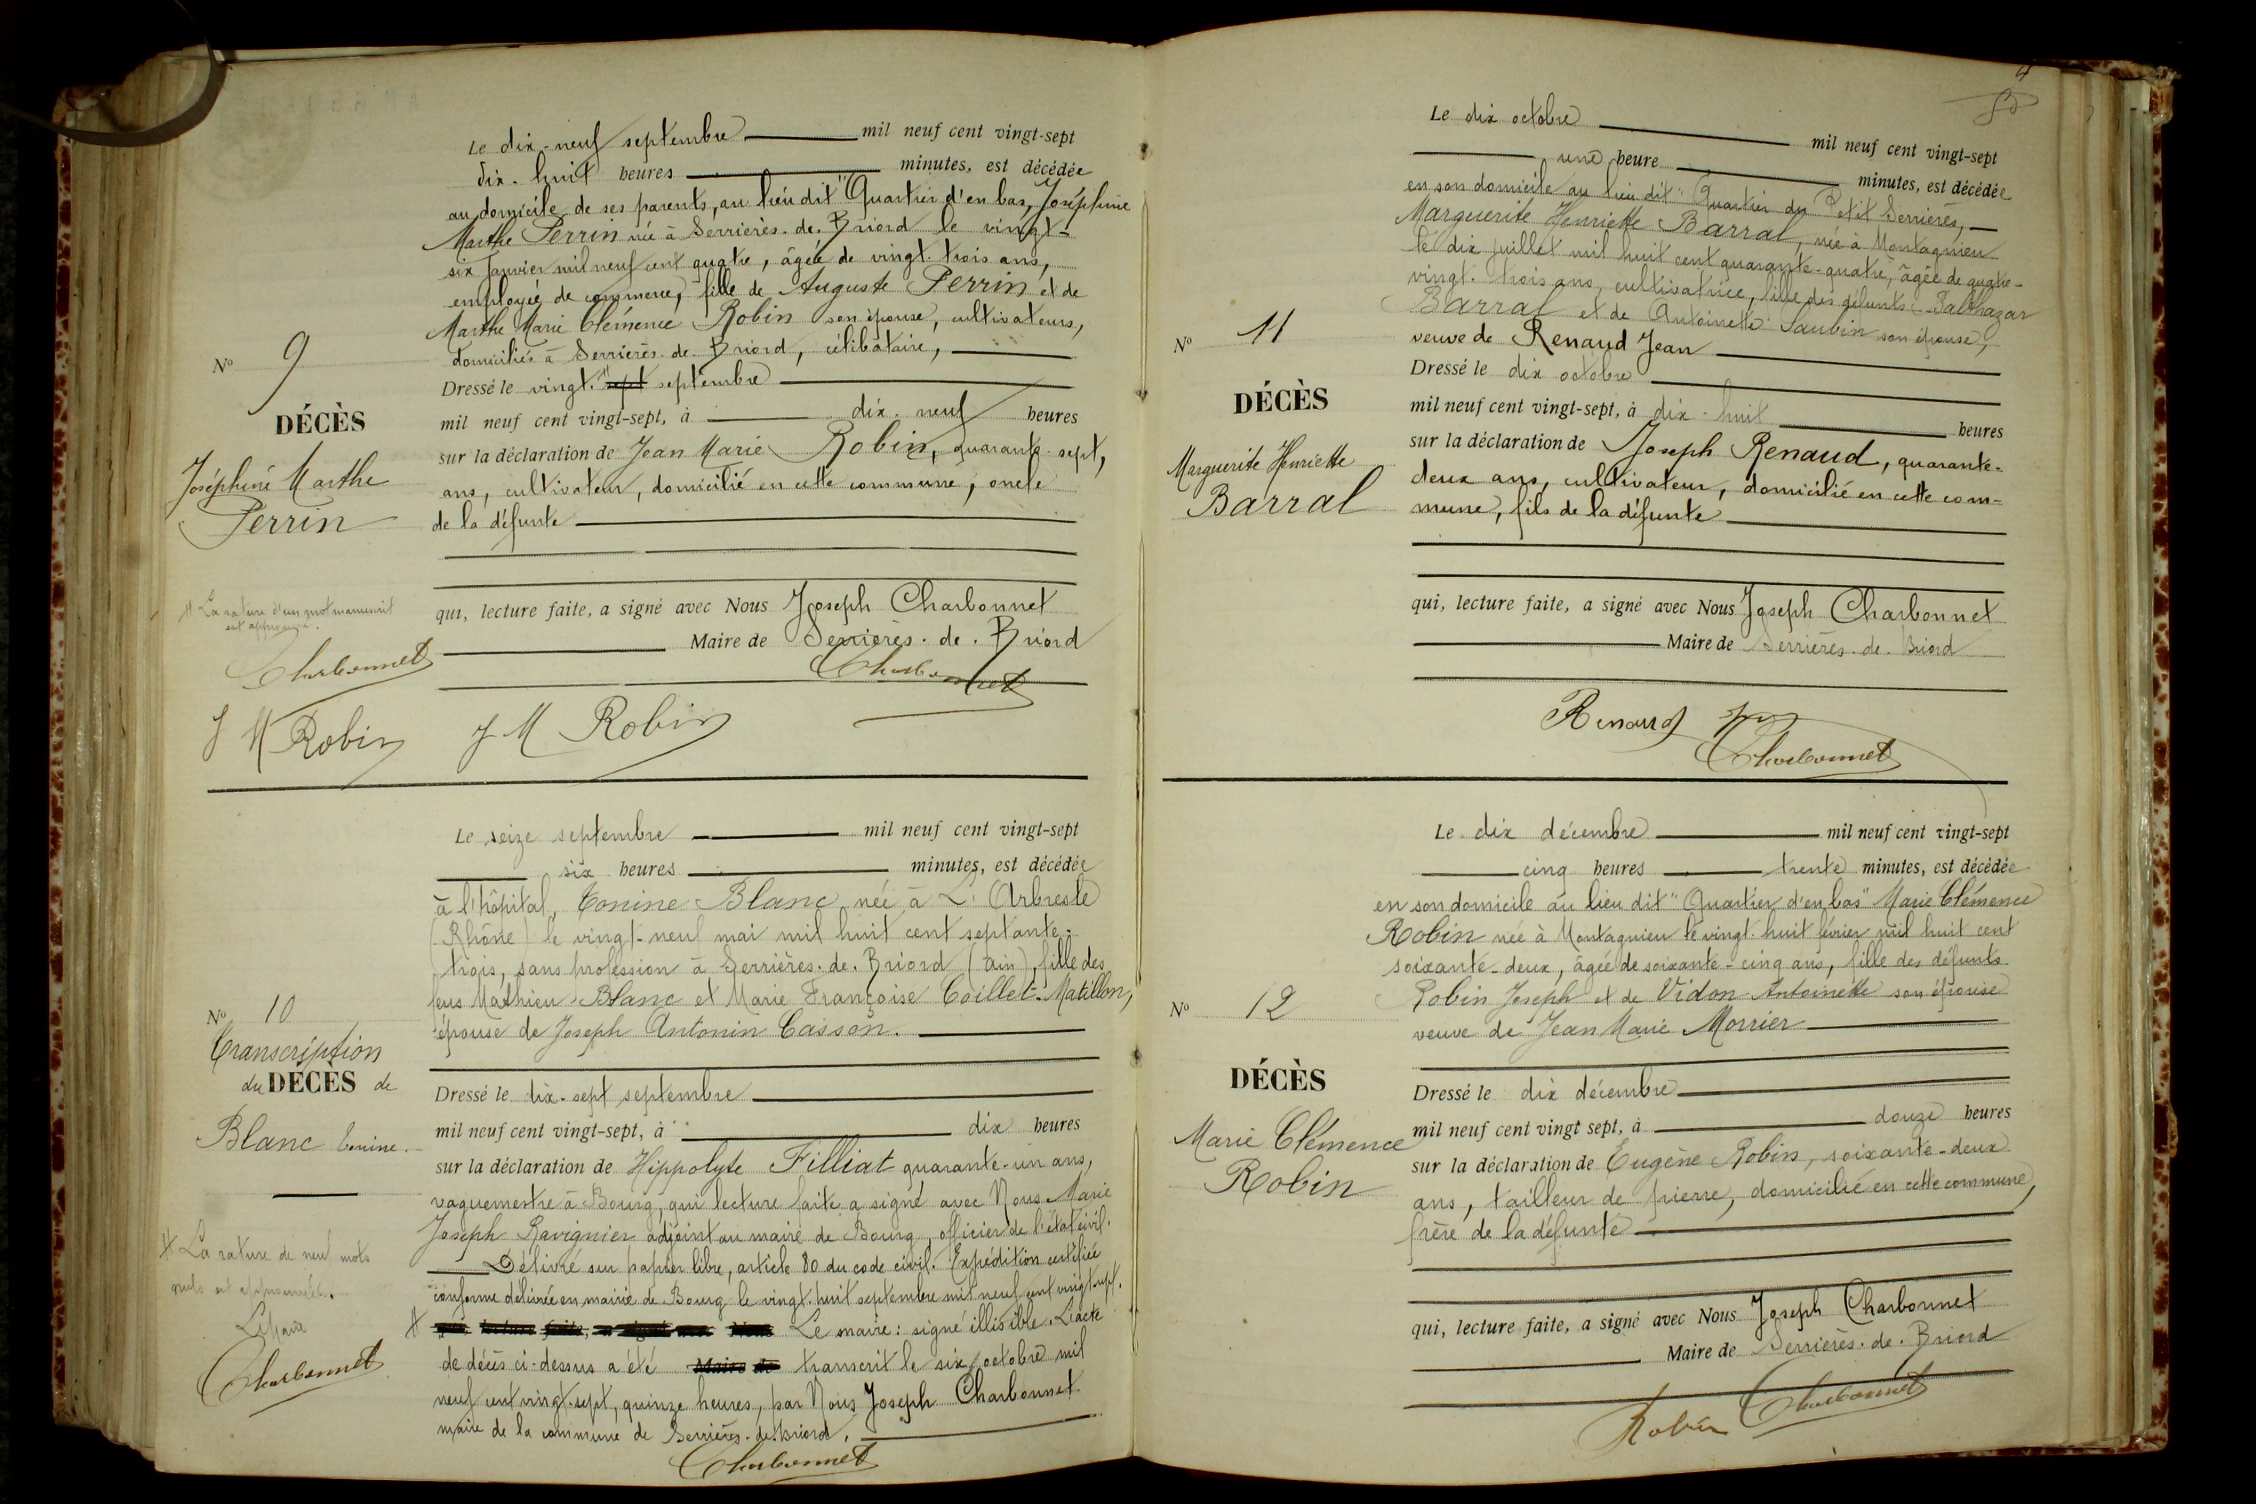 Le dix-neuf septembre mil neuf cent vingt-sept
dix-huit heures minutes, est décédée
au domicile de ses parents, au lieu dit "Quartier d'en bas, Joséphine
Marthe Perrin née à Serrières-de-Briord le vingt-
six janvier mil neuf cent quatre, âgée de vingt-trois ans,
employée de commerce, fille de Auguste Perrin et de
Marthe Marie Clémence Robin son épouse, cultivateurs,
domiciliés à Serrières-de-Briord, célibataire,
Dressé le vingt sept septembre
mil neuf cent vingt-sept, à dix-neuf heures
sur la déclaration de Jean Marie Robin, quarante-sept,
ans, cultivateur, domicilié en cette commune, oncle
de la défunte
qui, lecture faite, a signé avec Nous Joseph Charbonnet
Maire de Serrières-de-Briord
Charbonnet
J M Robin
No 9
DÉCÈS
Joséphine Marthe
Perrin
La rature d'un mot manuscrit
est approuvée.
Charbonnet
J M Robin
Le seize septembre mil neuf cent vingt-sept
six heures minutes, est décédée
à l'hôpital, Tonine Blanc née à L'Arbresle
(Rhône) le vingt-neuf mai mil huit cent septante-
trois, sans profession à Serrières-de-Briord (Ain), fille des
feus Mathieu Blanc et Marie Françoise Coillet-Matillon,
épouse de Joseph Antonin Casson.
Dressé le dix-sept septembre
mil neuf cent vingt-sept, à dix heures
sur la déclaration de Hippolyte Filliat quarante-un ans,
vaguemestre à Bourg, qui lecture faite a signé avec Nous Marie
Joseph Ravignier adjoint au maire de Bourg, officier de l'état civil.
Délivré sur papier libre, article 80 du code civil. Expédition certifiée
conforme délivrée en mairie de Bourg le vingt-huit septembre mil neuf cent vingt-sept.
qui, lecture faite, a signé avec Nous Le maire: signé illisible. L'acte
de décès ci-dessus a été Maire de transcrit le six octobre mil
neuf cent vingt-sept, quinze heures, par Nous Joseph Charbonnet
maire de la commune de Serrières-de-Briord.
Charbonnet
No 10
Transcription
du DÉCÈS de
Blanc Tonine.
La rature de neuf mots
nuls est approuvée.
Le Maire
Charbonnet
4
Le dix octobre mil neuf cent vingt-sept
une heure minutes, est décédée
en son domicile au lieu dit "Quartier du Petit Serrières,
Marguerite Henriette Barral, née à Montagnieu
le dix juillet mil huit cent quarante-quatre, âgée de quatre-
vingt-trois ans, cultivatrice, fille des défunts Balthazar
Barral et de Antoinette Saubin son épouse,
veuve de Renaud Jean
Dressé le dix octobre
mil neuf cent vingt-sept, à dix-huit heures
sur la déclaration de Joseph Renaud, quarante-
deux ans, cultivateur, domicilié en cette com-
mune, fils de la défunte
qui, lecture faite, a signé avec Nous Joseph Charbonnet
Maire de Serrières-de-Briord
Renaud
Charbonnet
No 11
DÉCÈS
Marguerite Henriette
Barral
Le dix décembre mil neuf cent vingt-sept
cinq heures trente minutes, est décédée
en son domicile au lieu dit "Quartier d'en bas" Marie Clémence
Robin née à Montagnieu le vingt-huit février mil huit cent
soixante-deux, âgée de soixante-cinq ans, fille des défunts
Robin Joseph et de Vidon Antoinette son épouse
veuve de Jean Marie Morrier
Dressé le dix décembre
mil neuf cent vingt sept, à douze heures
sur la déclaration de Eugène Robin, soixante-deux
ans, tailleur de pierre, domicilié en cette commune,
frère de la défunte
qui, lecture faite, a signé avec Nous Joseph Charbonnet
Maire de Serrières-de-Briord
Robin Charbonnet
No 12
DÉCÈS
Marie Clémence
Robin